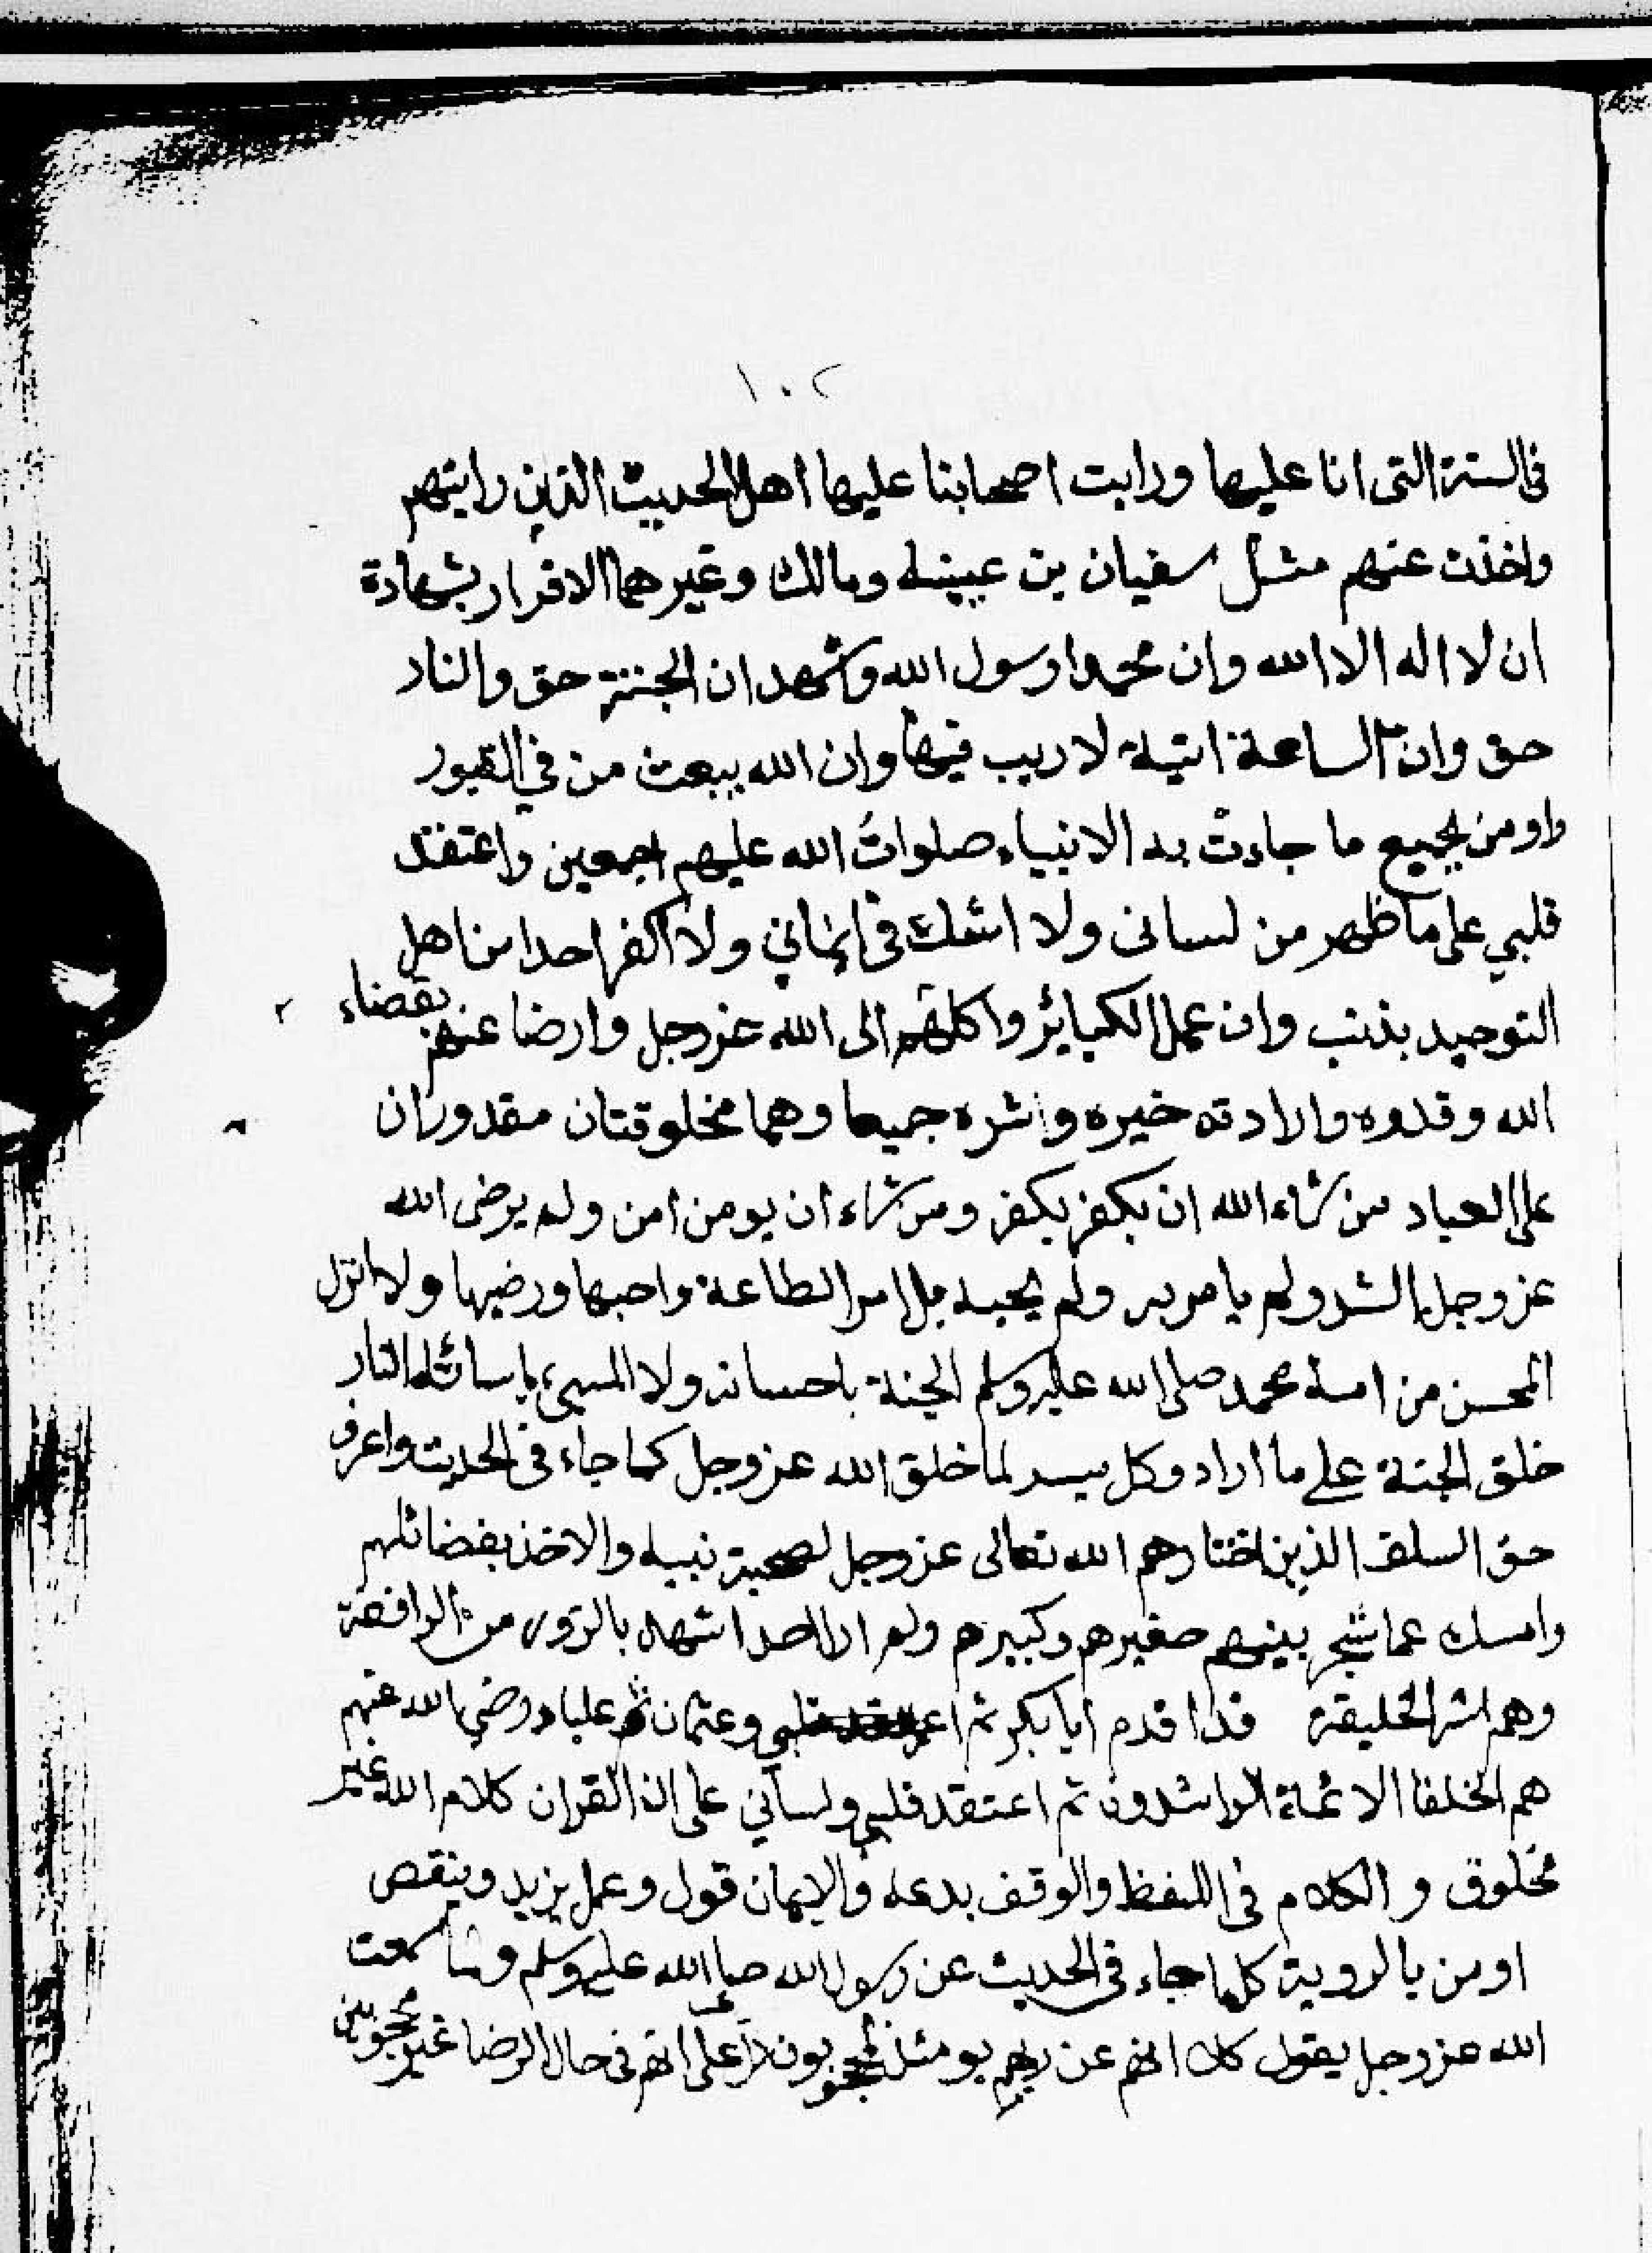 ١٠٢
في السنة التي انا عليها ورايت اصحابنا عليها اهل الحديث الذين رايتهم
واخذت عنهم مثل سفيان بن عيينه ومالك وغيرهما الاقرار بشهادة
ان لا اله الا الله وان محمدا رسول الله وشهد ان الجنة حق والنار
حق وان الساعة اتية لا ريب فيها وان الله يبعث من في القبور
واومن بجميع ما جاءت به الانبياء صلوات الله عليهم اجمعين واعتقد
قلبي على ما ظهر من لساني ولا اشك في ايماني ولا اكفر احدا من اهل
التوحيد بذنب وان عمل الكبائر واكلهم الى الله عز وجل وارضا عنهم بقضاء
الله وقدره وارادته خيره واشره جميعا وهما مخلوقتان مقدوران
على العباد من شاء الله ان يكفر يكفر ومن شاء ان يومن امن ولم يرضى الله
عز وجل بالشر ولم يامر به ولم يحبه بل امر الطاعة واحبها ورضيها ولا انزل
المحسن من امة محمد صلى الله عليه وسلم الجنة باحسانه ولا المسيء باسائته النار
خلق الجنة على ما اراد وكل ميسر لما خلق الله عز وجل كما جاء في الحديث واعرف
حق السلف الذين اختارهم الله تعالى عز وجل لصحبة نبيه والاخذ بفضائلهم
وامسك عما شجر بينهم صغيرهم وكبيرهم ولم ار احدا اشهد بالزور من الرافضة
وهم اشر الخليقة فذا قدم ابا بكر ثم وعثمان ثم عليا ورضي الله عنهم
هم الخلفا الائمة الراشدون ثم اعتقد قلبي ولساني على ان القران كلام الله غير
مخلوق و الكلام في اللفظ والوقف بدعه والايمان قول وعمل يزيد وينقص
اومن بالروية كلما جاء في الحديث عن رسول الله صلى الله عليه وسلم سمعت
الله عز وجل يقول كلا انهم عن ربهم يومئذ لمحجوبون على انهم في حال الرضا غير محجوبين